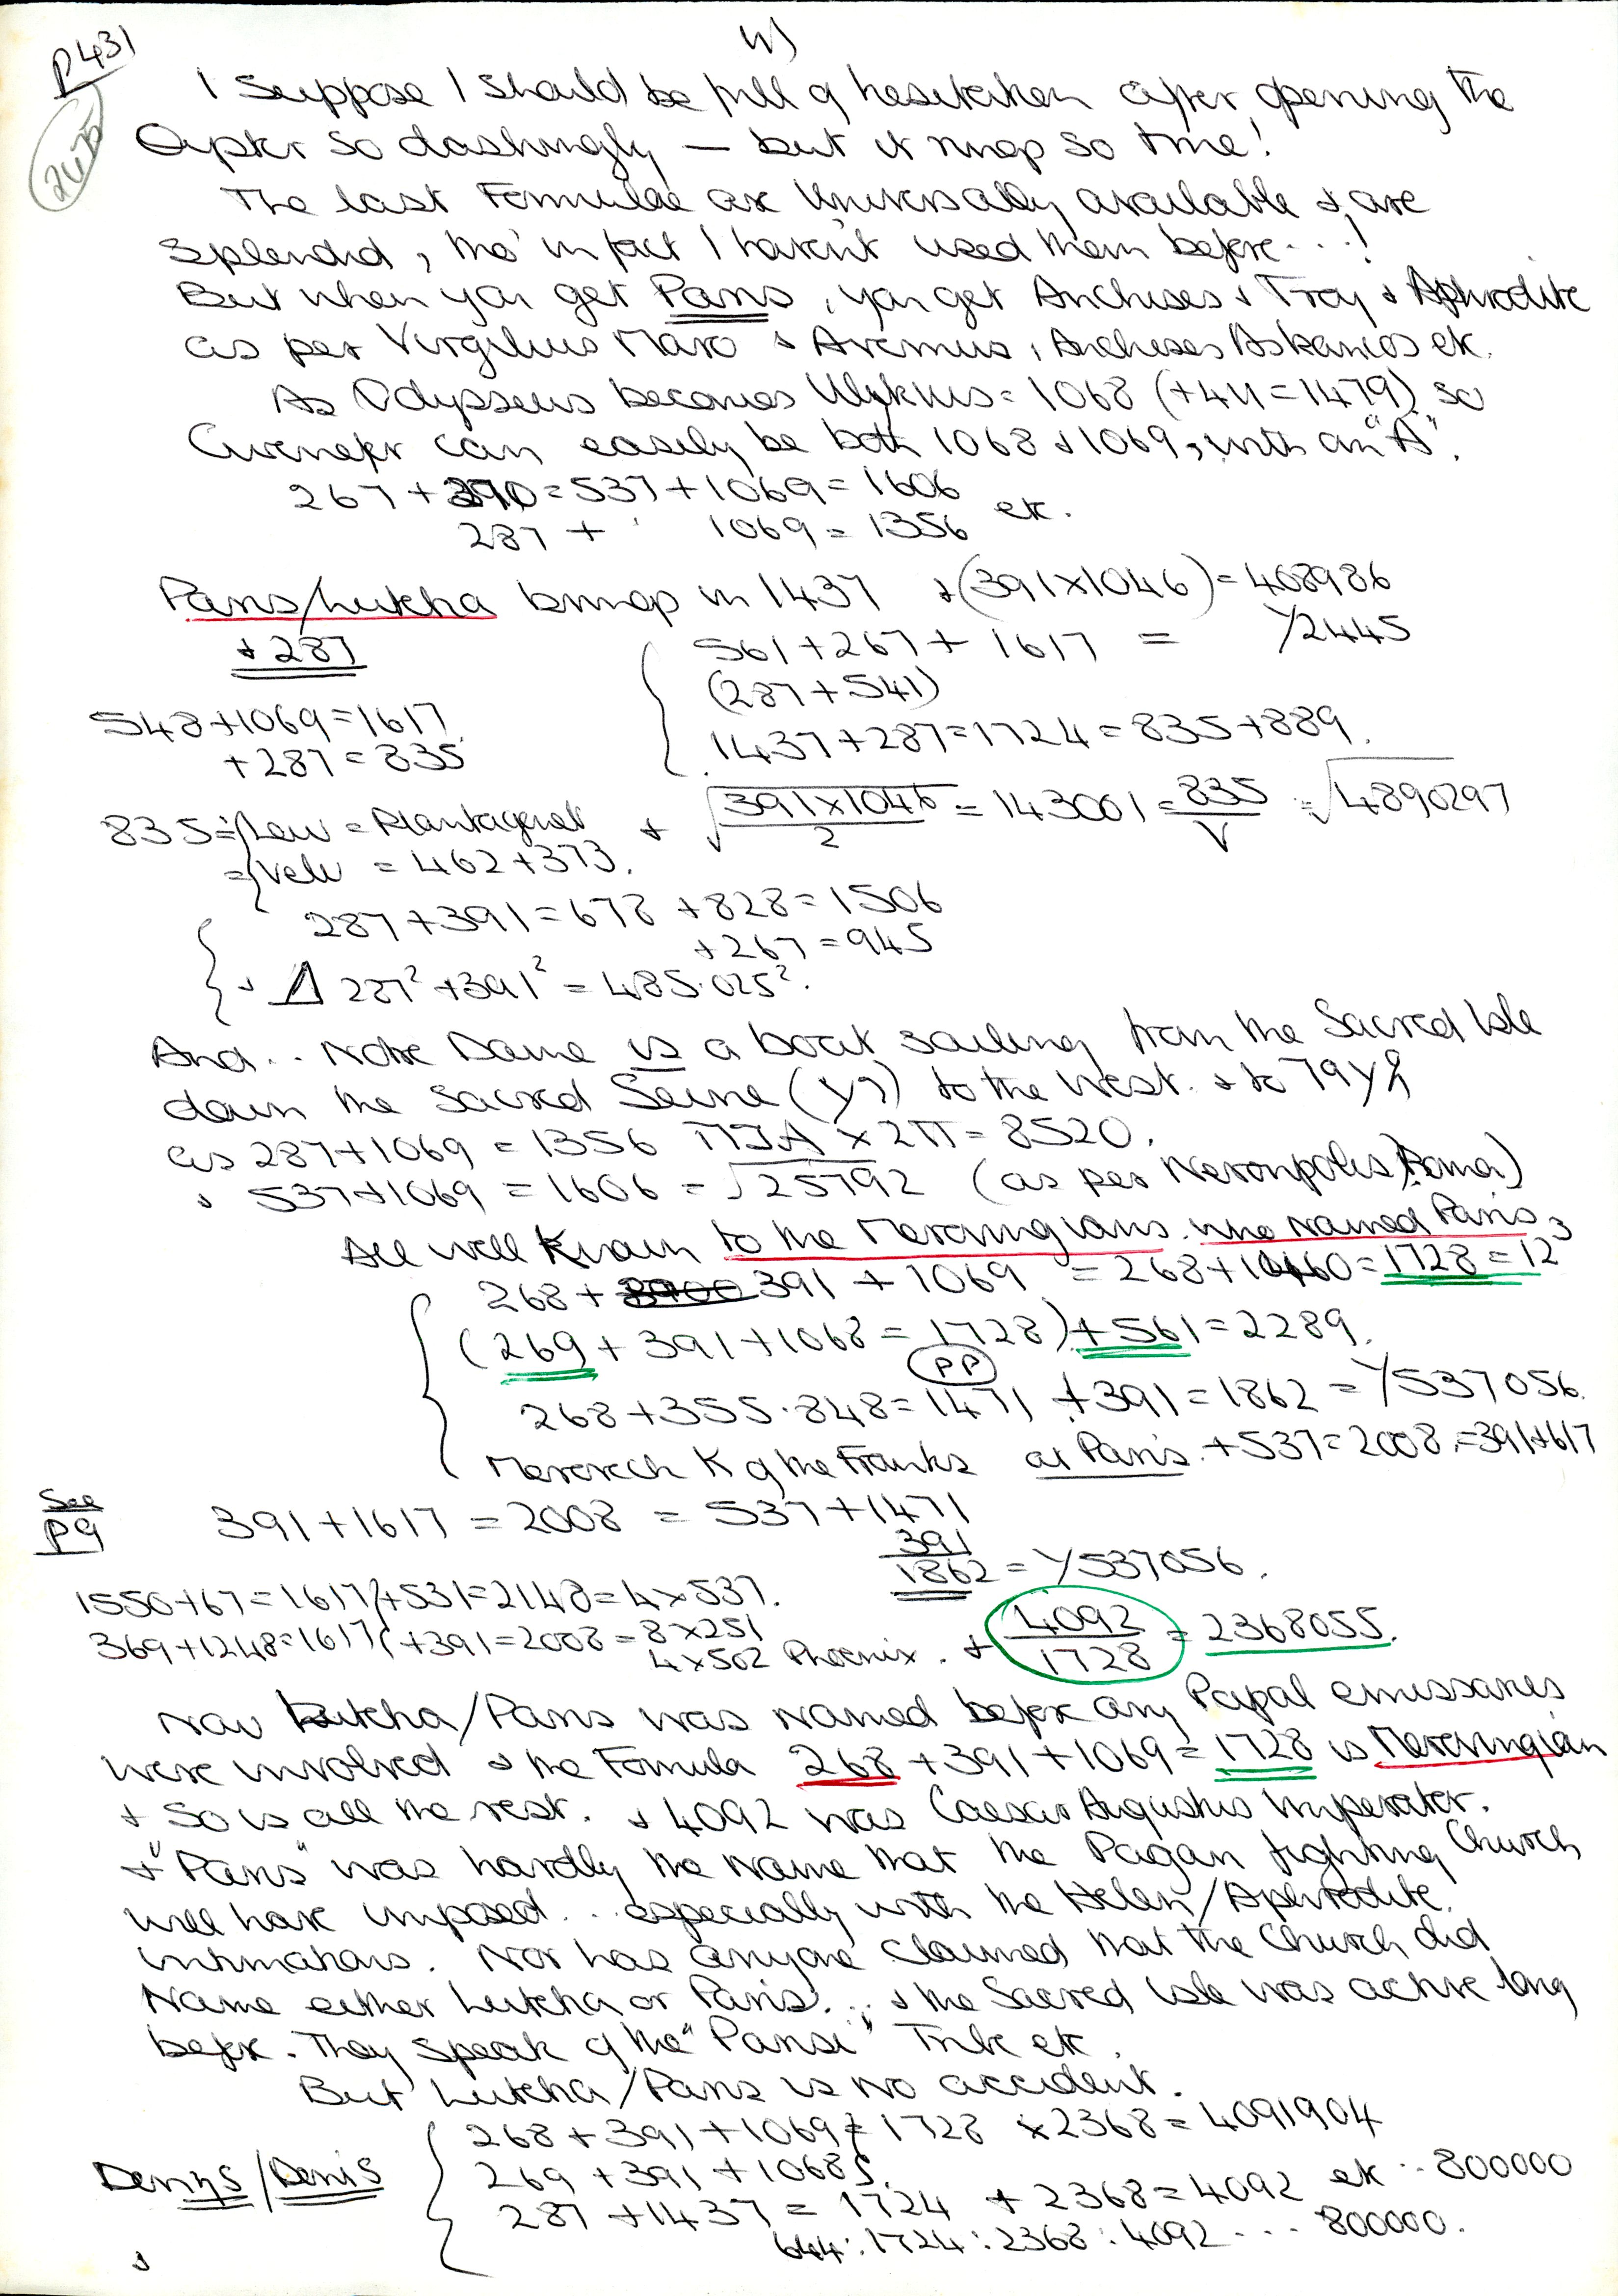 P431
W)
I suppose I should be full of hesitation after opening the
so dashingly — but it rings so true!
The last Formulae are Universally available & are
Splendid, tho' in fact I haven't used them before...!
But when you get Paris, you get Anchises & Troy & Aphrodite
as per Virgilius Maro & Anchises Askanios etc.
As Odysseus becomes = 1068 (+411=1479) so
can easily be both 1068 & 1069, with an "A".
267 + 270 = 537 + 1069 = 1606
287 + 1069 = 1356 etc.
Paris/Lutetia brings in 1437 & (391×1046) = 408986
+ 287
561+267+ 1617 = √2445
(287+541)
548+1069=1617
1437+287=1724=835+889.
+287=835
835 = = Plantagenet
= 462+373.
& √391×1046/2 = 143001 = 835/V = √4890297
287+391=678 +828=1506
+267=945
& 287² +391² = 485.025².
And.. Notre Dame is a boat sailing from the Sacred Isle
down the Sacred Seine (Y?) to the West. & to 79Y
as 287+1069 = 1356 × 2π = 8520.
& 537+1069 = 1606 = √25792 (as per Neronpolis/Roma)
All well known to the Merovingians who named Paris,
268 + 391 + 1069 = 268+1460=1728=12³
(269 + 391 +1068 = 1728) + 561=2289.
(PP)
268+355.848=1471 +391=1862=√537056.
Merovech K of the Franks at Paris. +537=2008.=391+617
See
P9
391+1617 = 2008 = 537+1471
391
1862 = √537056.
1550+67=1617(+531=2148=4×537.
369+1248=1617(+391=2008=8×251
4×502 Phoenix. & 4092/1728 = 2368055.
Now Lutetia/Paris was named before any Papal emissaries
were involved & the Formula 268 +391+1069=1728 is Merovingian
& so is all the rest. & 4092 was Caesar Augustus Imperator.
& "Paris" was hardly the name that the Pagan fighting Church
will have imposed... especially with the Helen/Aphrodite.
intimations. Nor has anyone claimed that the Church did
Name either Lutetia or Paris... & the Sacred Isle was active long
before. They speak of the "Parisi" Tribe etc.
But Lutetia/Paris is no accident.
268 + 391 +1069 } 1728 ×2368=4091904
Denys/Denis
269 +391 +1068
287 +1437 = 1724 + 2368=4092 etc .. 800000
644:1724:2368:4092... 800000.